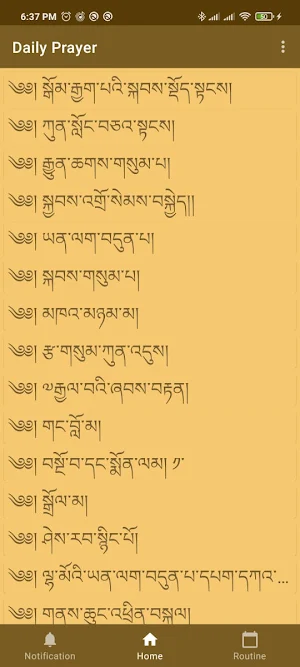 6:37 PM
Daily Prayer
༄༅། སྒོམ་རྒྱག་པའི་སྐབས་སྡོད་སྟངས།
༄༅། ཀུན་སློང་བཅའ་སྟངས།
༄༅། རྒྱུན་ཆགས་གསུམ་པ།
༄༅། སྐྱབས་འགྲོ་སེམས་བསྐྱེད།།
༄༅། ཡན་ལག་བདུན་པ།
༄༅། སྐབས་གསུམ་པ།
༄༅། མཁའ་མཉམ་མ།
༄༅། རྩ་གསུམ་ཀུན་འདུས།
༄༅། ༧རྒྱལ་བའི་ཞབས་བརྟན།
༄༅། གང་བློ་མ།
༄༅། བསྔོ་བ་དང་སྨོན་ལམ། ༡་
༄༅། སྒྲོལ་མ།
༄༅། ཤེས་རབ་སྙིང་པོ།
༄༅། ལྷ་མོའི་ཡན་ལག་བདུན་པ་དཔག་དཀའ་...
༄༅། གནས་ཆུང་འཕྲིན་བསྐུལ།
Notification Home Routine